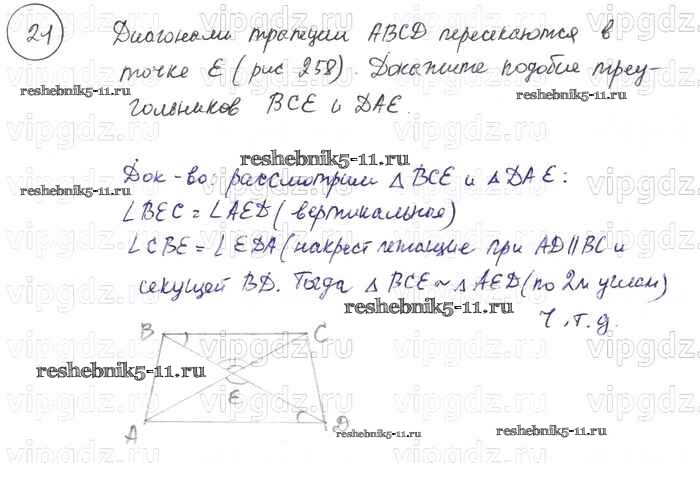 21 Диагонали трапеции ABCD пересекаются в
точке E (рис 258). Докажите подобие треу-
гольников BCE и DAE.
Док-во: рассмотрим △ BCE и △ DAE:
∠BEC = ∠AED (вертикальные)
∠CBE = ∠EDA (накрест лежащие при AD ∥ BC и
секущей BD. Тогда △ BCE ~ △ AED (по 2м углам)
Ч.т.д.
B C
E
A D
reshebnik5-11.ru
reshebnik5-11.ru
reshebnik5-11.ru
reshebnik5-11.ru
reshebnik5-11.ru
reshebnik5-11.ru
reshebnik5-11.ru
reshebnik5-11.ru
vipgdz.ru vipgdz.ru vipgdz.ru vipgdz.ru